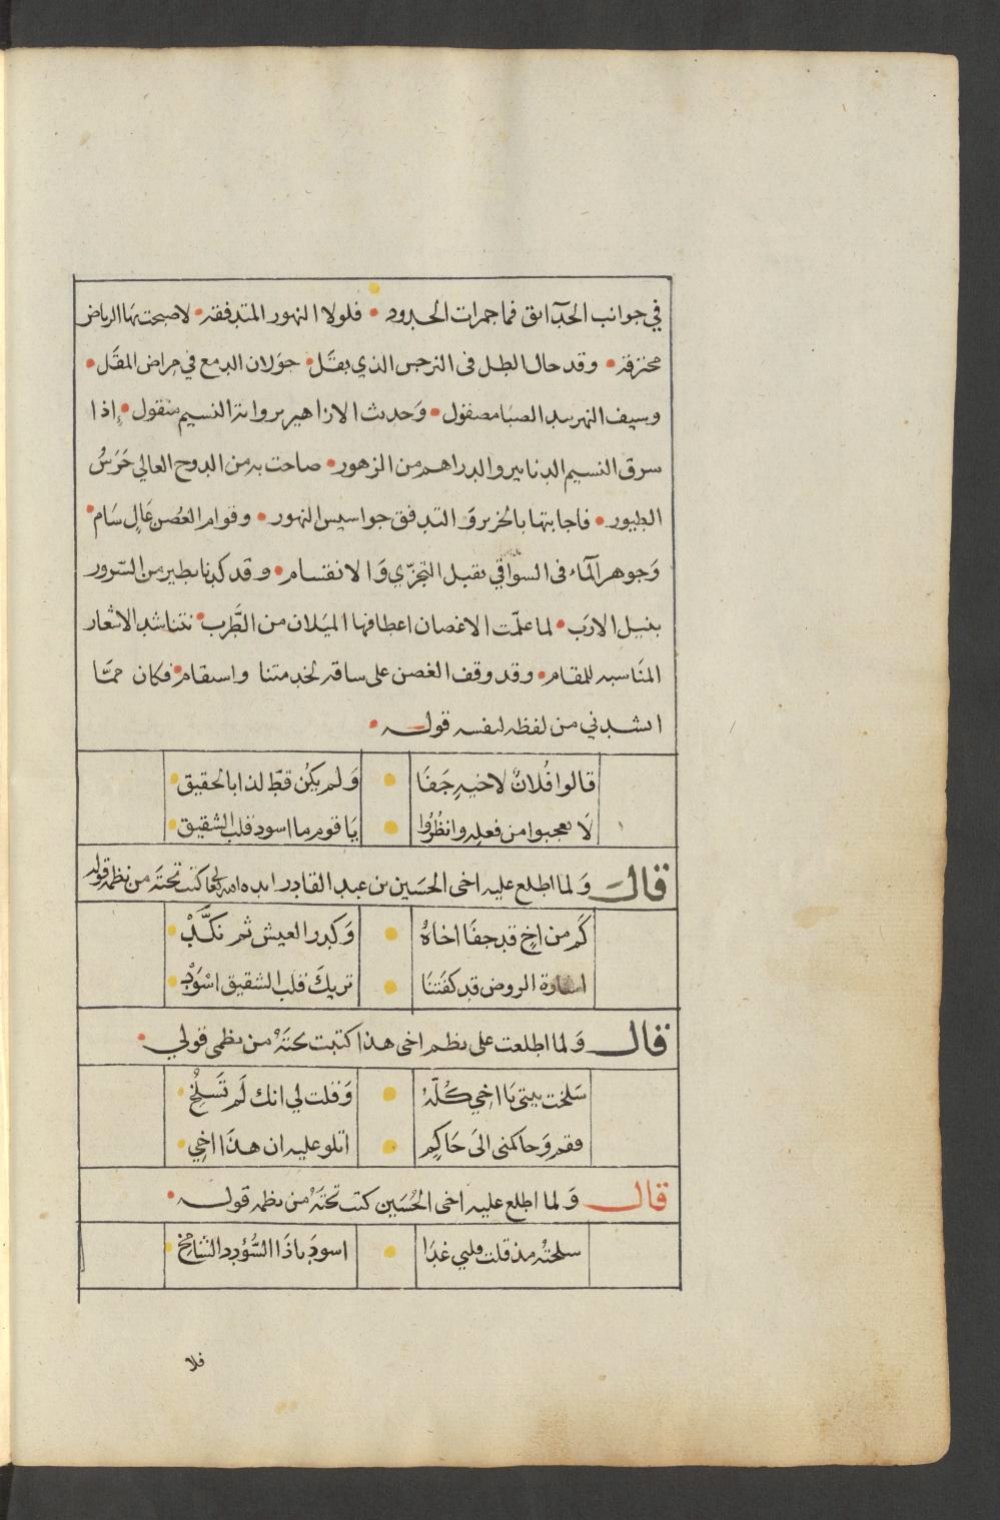 في جوانب الحدآئق فما جمرات الخدود • فلولا النهور المتدفقه • لاصبحت بها الرياض
محترقة • وقد جال الطل فى النرجس الذي بقل • جولان الدمع في مراض المقل •
وسيف النهر بيد الصبا مصقول • وحديث الازاهير برواية النسيم منقول • إذا
سرق النسيم الدنانير والدراهم من الزهور • صاحت به من الدوح العالي خرس
الطيور • فاجابتها بالخرير والتدفق جواسيس النهور • وقوام الغصن عال سام •
وجوهر المآء فى السواقي يقبل التجزّي والانقسام • وقد كدنا نطير من السرور
بنيل الارب • لما علّمت الاغصان اعطافها الميلان من الطَّرب • نتناشد الاشعار
المناسبه للمقام • وقد وقف الغصن على ساقه لخدمتنا واستقام • فكان ممّا
انشدني من لفظه لنفسه قوله •
قالوا فُلانٌ لاخيهِ جَفَا • وَلم يكُن قطّ لذا بالحقيق •
لَا تعجبوا من فعله وانظُرُوا • يَا قوم ما اسود قلب الشقيق •
قال وَلما اطلع عليه اخى الحسَين بن عبد القادر ايده الله تعالى كتب تحتَه من نظمه قوله
كَم من اخٍ قد جفَا اخاهُ • وَكدر العيش ثم نكَّدْ •
اشارة الروض قد كفَتنَا • تريكَ قلب الشقيق اسْوَدْ •
قال وَلما اطلعت على نظم اخى هذا كتبت تحتَهُ من نظمى قولي •
سَلخت بيتى يَا اخي كُلَّهُ • وَقلت لي انك لَم تَسلُخِ •
فقم وَحاكمنى الىَ حَاكِمٍ • اتلو عليه ان هذَا اخِي •
قال وَلما اطلع عليه اخى الحُسَين كتب تحتَهُ من نظمه قوله •
سلختُه مذ قلت قلبي غدَا • اسودَ ياذَا السُّؤدد الشامخ •
فلا